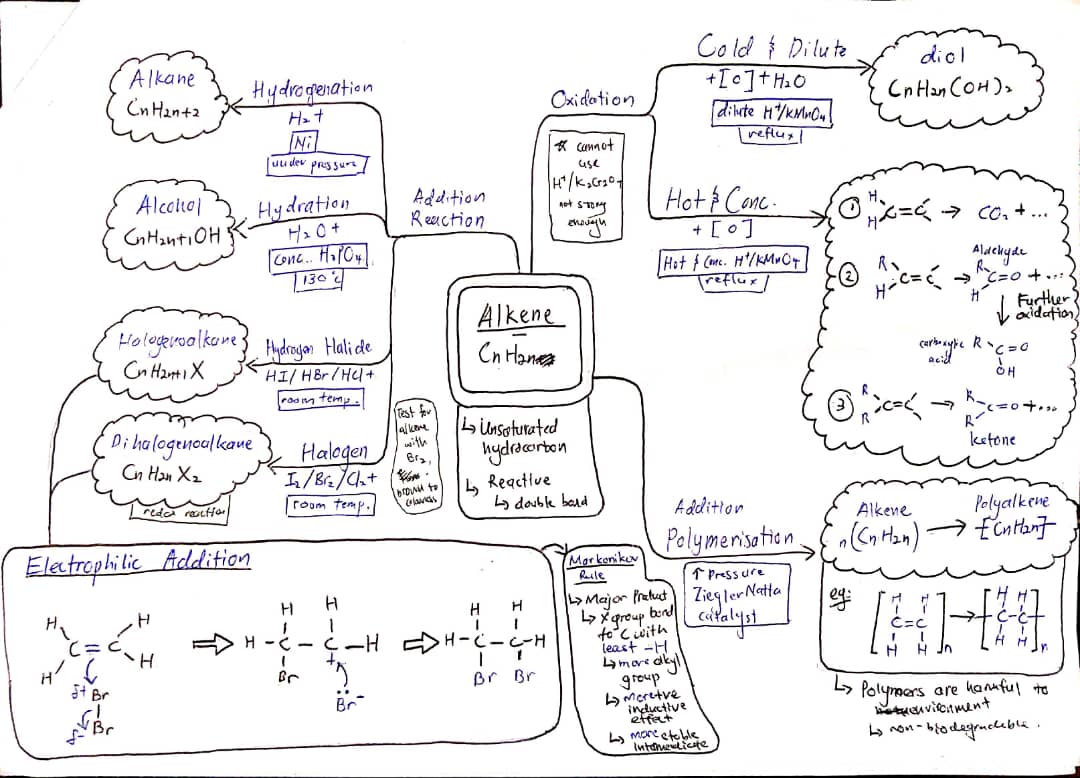 Alkane
CnH2n+2
Hydrogenation
H2+
Ni
under pressure
Alcohol
CnH2n+1OH
Hydration
H2O+
Conc. H3PO4
130°C
Addition
Reaction
Halogenoalkane
CnH2n+1X
Hydrogen Halide
HI/HBr/HCl+
room temp.
Dihalogenoalkane
CnH2nX2
redox reaction
Halogen
I2/Br2/Cl2+
room temp.
Test for
alkene
with
Br2,
brown to
Alkene
CnH2n
↳ Unsaturated
hydrocarbon
↳ Reactive
↳ double bond
Oxidation
* cannot
use
H+/K2Cr2O7
not strong
enough
Cold & Dilute
+[O]+H2O
dilute H+/KMnO4
reflux
diol
CnH2n(OH)2
Hot & Conc.
+ [O]
Hot & Conc. H+/KMnO4
reflux
① H H C=C → CO2 + ...
Aldehyde
② R H C=C → R H C=O + ...
↓ Further
oxidation
carboxylic
acid
R C=O
OH
③ R R C=C → R R C=O + ...
ketone
Addition
Polymerisation
↑ Pressure
Ziegler Natta
catalyst
Alkene → Polyalkene
n(CnH2n) → [CnH2n]
eg:
H H H H
[C=C]n → [C-C]n
H H H H
↳ Polymers are harmful to
environment
↳ non-biodegradable.
Electrophilic Addition
H H H H H H
C=C ⇒ H-C-C-H ⇒ H-C-C-H
H H Br + Br Br
δ+ Br
δ- Br
Br-
Markonikov
Rule
↳ Major Product
↳ X group bond
to C with
least -H
↳ more alkyl
group
↳ more +ve
inductive
effect
↳ more stable
intermediate